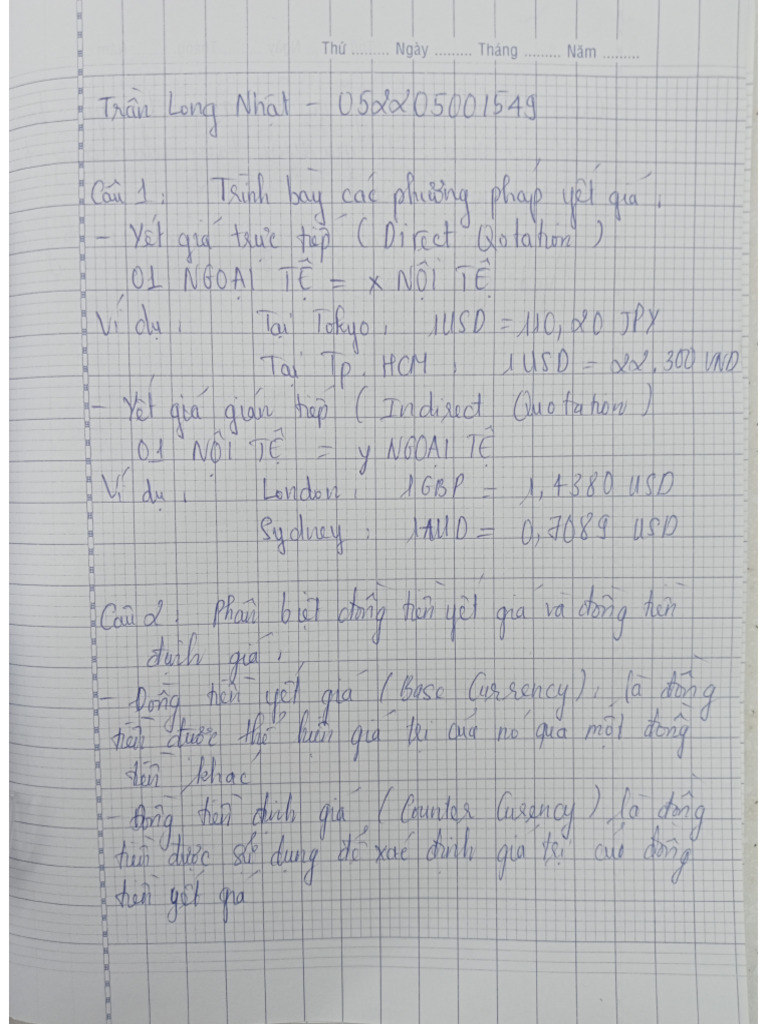 Thứ ......... Ngày ......... Tháng ......... Năm .........
Trần Long Nhật - 052205001549
Câu 1: Trình bày các phương pháp yết giá.
- Yết giá trực tiếp (Direct Qotation)
01 NGOẠI TỆ = x NỘI TỆ
Ví dụ: Tại Tokyo: 1USD = 110,20 JPY
Tại Tp. HCM: 1USD = 22.300 VND
- Yết giá gián tiếp (Indirect Quotation)
01 NỘI TỆ = y NGOẠI TỆ
Ví dụ: London: 1GBP = 1,4380 USD
Sydney: 1AUD = 0,7089 USD
Câu 2: Phân biệt đồng tiền yết giá và đồng tiền
định giá.
- Đồng tiền yết giá (Base Currency): là đồng
tiền được thể hiện giá trị của nó qua một đồng
tiền khác
- Đồng tiền định giá (Counter Curency) là đồng
tiền được sử dụng để xác định giá trị của đồng
tiền yết giá